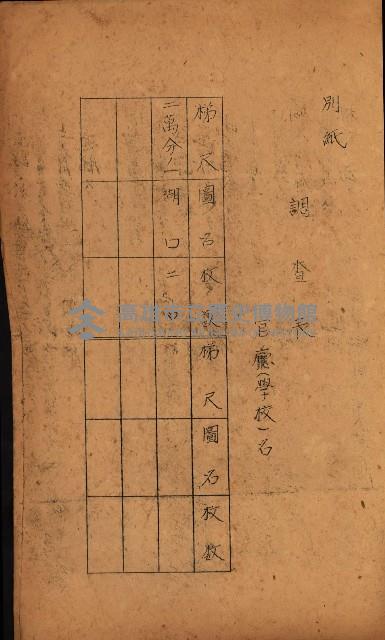 別紙
調査表
官廳(學校)名
梯尺 圖名 枚数 梯尺 圖名 枚数
二萬分ノ一 湖口 二
高雄市立歷史博物館